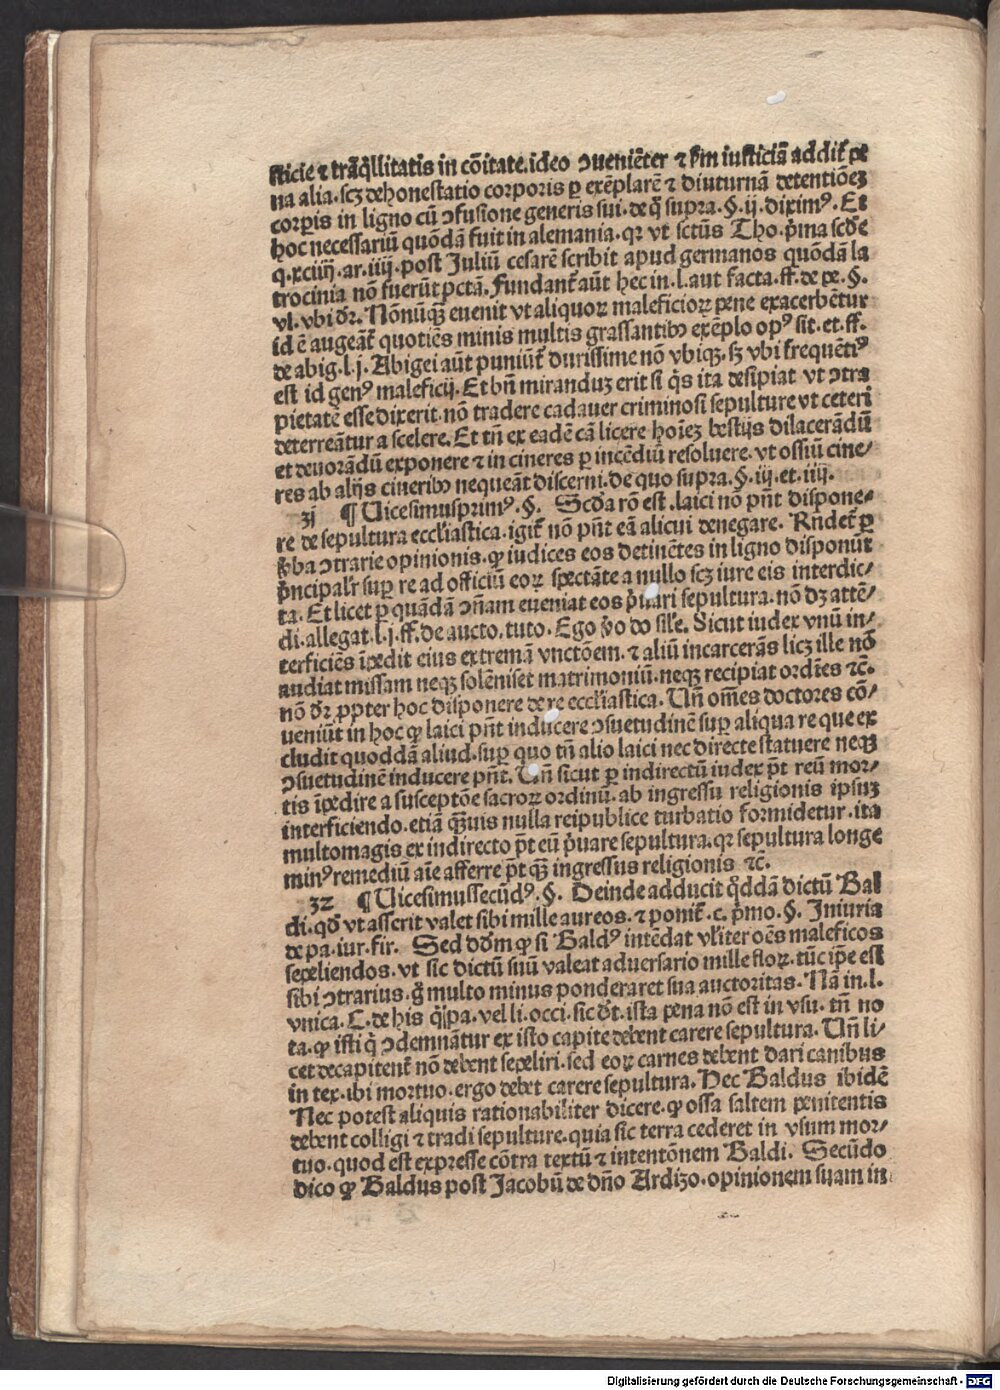 sticie ⁊ trãq̃llitatis in cõitate. ideo ↄueniẽter ⁊ ẜm iusticiã addit᷑ pe
na alia. scꝫ dehonestatio corporis ꝑ exẽplarẽ ⁊ diuturnã detentiõeꝫ
corꝑis in ligno cũ ↄfusione generis sui. de q̃ supra. §. ij. diximꝰ. Et
hoc necessariũ quõdã fuit in alemania. qꝛ vt sctũs Tho. p̃ma scďe
q. xciiij. ar. iiij. post Juliũ cesarẽ scribit apud germanos quõdã la
trocinia nõ fuerũt pctã. Fundant᷑ aũt hec in. l. aut facta. ff. de pe. §.
vl. vbi dr̃. Nõnũqꝫ euenit vt aliquoꝝ maleficioꝝ pene exacerbẽtur
id ẽ augeãt᷑ quotiẽs minis multis grassantibꝰ exẽplo opꝰ sit. et. ff.
de abig. l. j. Abigei aũt puniũt᷑ durissime nõ vbiqꝫ. sꝫ vbi frequẽtiꝰ
est id genꝰ maleficij. Et bñ miranduꝫ erit si q̃s ita desipiat vt ↄtra
pietatẽ esse dixerit. nõ tradere cadauer criminosi sepulture vt ceteri
deterreãntur a scelere. Et tñ ex eadẽ cã licere hoĩeꝫ bestijs dilacerãdũ
et deuorãdũ exponere ⁊ in cineres ꝑ incẽdiũ resoluere. vt ossiũ cine/
res ab alijs cineribꝰ nequeãt discerni. de quo supra. §. iij. et. iiij.
31 ¶ Uicesimusprimꝰ. §. Scďa rõ est. laici nõ pñt dispone/
re de sepultura eccl̃iastica. igit᷑ nõ pñt eã alicui denegare. Rñdet᷑ ꝑ
ṽba ↄtrarie opinionis. ꝙ iudices eos detinẽtes in ligno disponũt
p̃ncipalr̃ suꝑ re ad officiũ eoꝝ spectãte a nullo scꝫ iure eis interdic/
ta. Et licet ꝑ quãdã ↄñam eueniat eos p̃uari sepultura. nõ dꝫ attẽ/
di. allegat. l. j. ff. de aucto. tuto. Ego ṽo do sil̃e. Sicut iudex vnũ in/
terficiẽs ĩpedit eius extremã vnctõem. ⁊ aliũ incarcerãs licꝫ ille nõ
audiat missam neqꝫ solẽniset matrimoniũ. neqꝫ recipiat ordĩes ⁊c̃.
nõ dr̃ ꝓpter hoc disponere de re eccl̃iastica. Uñ om̃es doctores cõ/
ueniũt in hoc ꝙ laici pñt inducere ↄsuetudinẽ suꝑ aliqua re que ex
cludit quoddã aliud. suꝑ quo tñ alio laici nec directe statuere neqꝫ
ↄsuetudinẽ inducere pñt. Uñ sicut ꝑ indirectũ iudex p̃t reũ mor/
tis ĩpedire a susceptõe sacroꝝ ordinũ. ab ingressu religionis ipsuꝫ
interficiendo. etiã qꝫuis nulla reipublice turbatio formidetur. ita
multomagis ex indirecto p̃t eũ p̃uare sepultura. qꝛ sepultura longe
minꝰ remediũ aĩe afferre p̃t qꝫ ingressus religionis ⁊c̃.
32 ¶ Uicesimussecũdꝰ. §. Deinde adducit q̃ddã dictũ Bal
di. qď vt asserit valet sibi mille aureos. ⁊ ponit᷑. c. p̃mo. §. Iniuria
de pa. iur. fir. Sed ďďm ꝙ si Baldꝰ intẽdat vl̃iter oẽs maleficos
sepeliendos. vt sic dictũ suũ valeat aduersario mille floꝝ. tũc ip̃e est
sibi ↄtrarius. g̃ multo minus ponderaret sua auctoritas. Nã in. l.
vnica. C. de his q̃ pa. vel li. occi. sic dr̃t. ista pena nõ est in vsu. tñ no
ta. ꝙ isti q̃ ↄdemnãtur ex isto capite debent carere sepultura. Uñ li/
cet decapitent᷑ nõ debent sepeliri. sed eoꝝ carnes debent dari canibus
in tex. ibi mortuo. ergo debet carere sepultura. Hec Baldus ibidẽ
Nec potest aliquis rationabiliter dicere. ꝙ ossa saltem penitentis
debent colligi ⁊ tradi sepulture. quia sic terra cederet in vsum mor/
tuo. quod est expresse cõtra textũ ⁊ intentõnem Baldi. Secũdo
dico ꝙ Baldus post Jacobũ de dño Ardizo. opinionem suam in
Digitalisierung gefördert durch die Deutsche Forschungsgemeinschaft - DFG